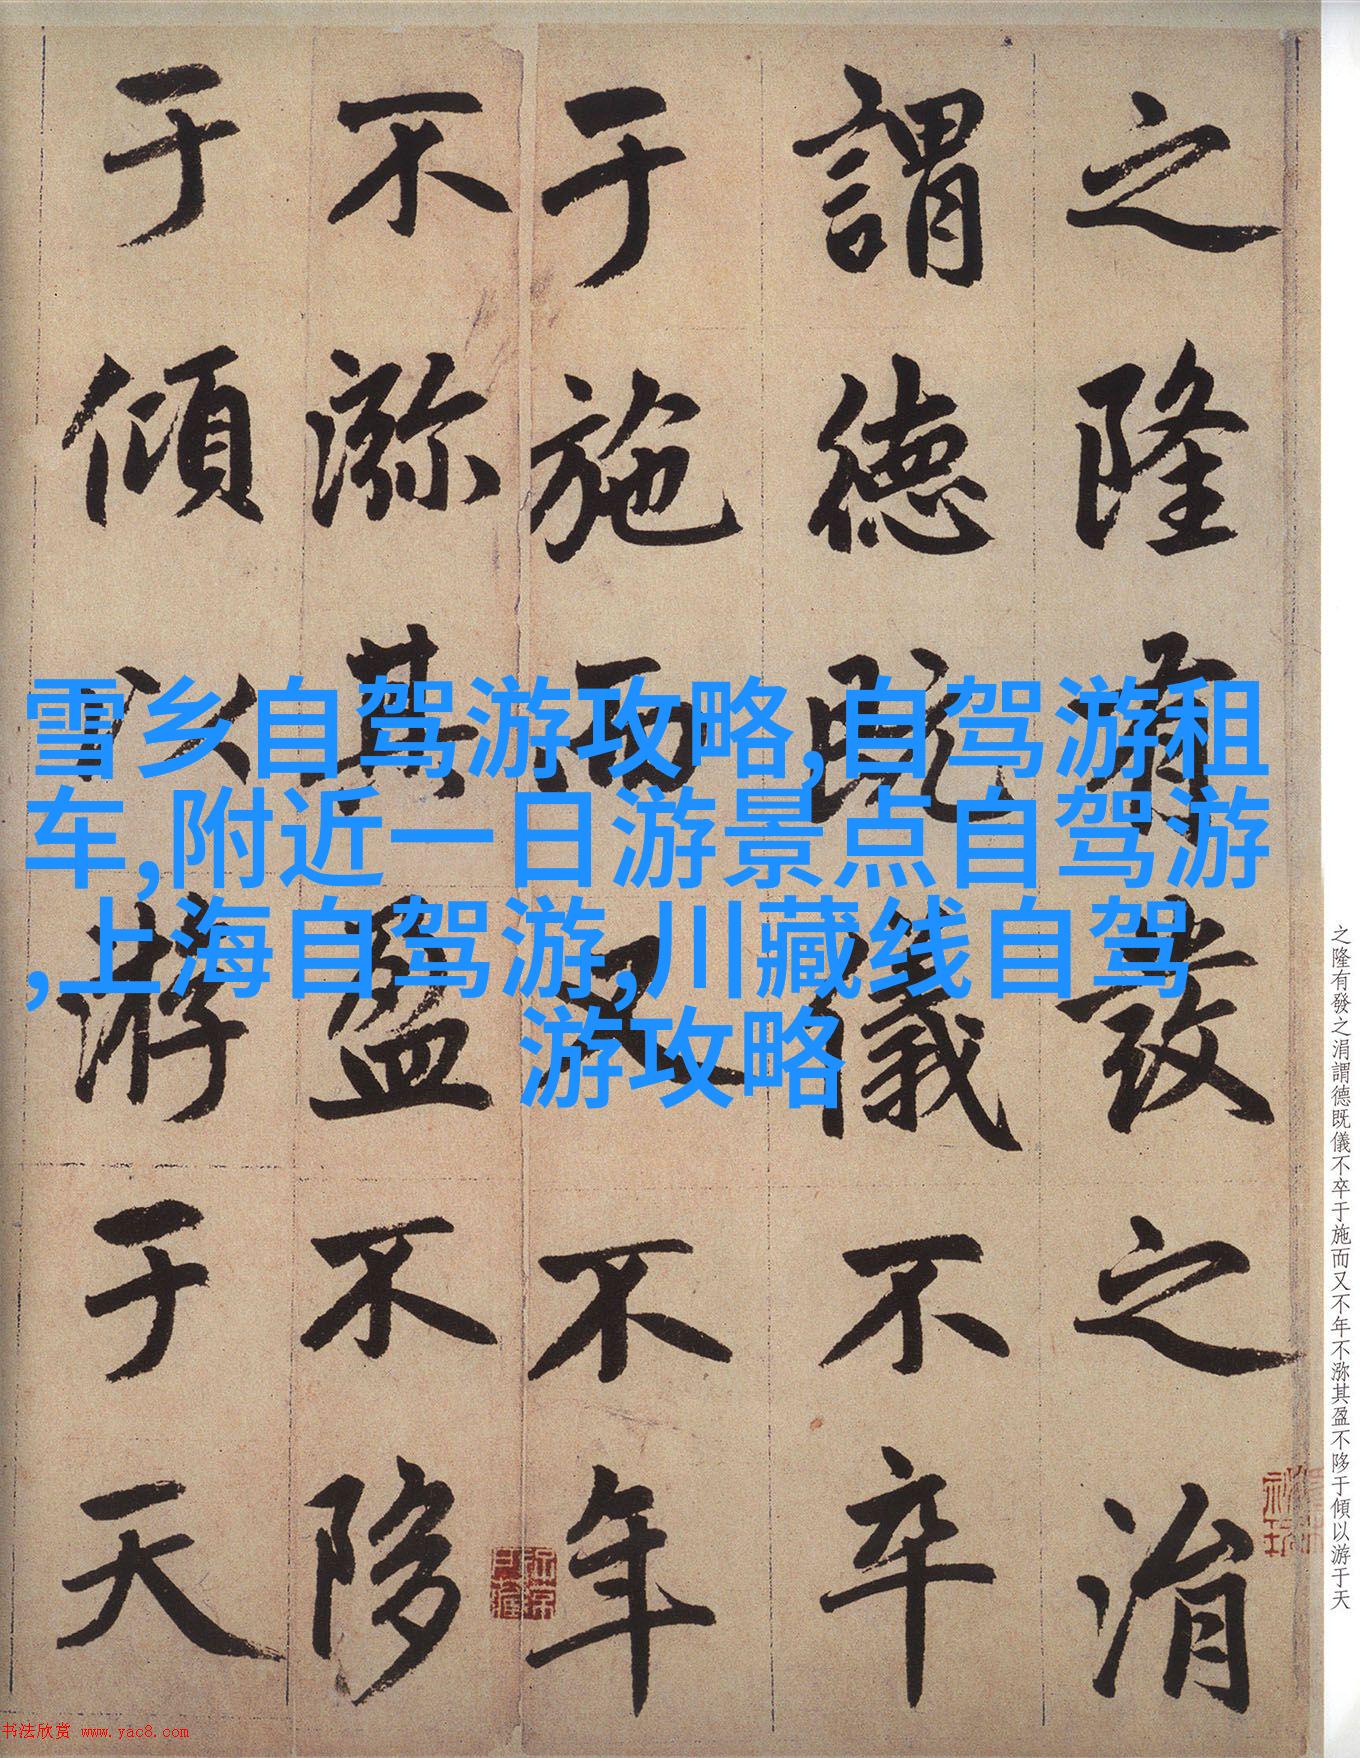 之隆有發之涓
謂德既儀不卒
于施而又不年
不沵其盈不陊
于傾以游于天
雪乡自驾游攻略,自驾游租
车,附近一日游景点自驾游
,上海自驾游,川藏线自驾
游攻略
之隆有發之涓謂德既儀不卒于施而又不年不沵其盈不陊于傾以游于天
书法欣赏 www.yac8.com